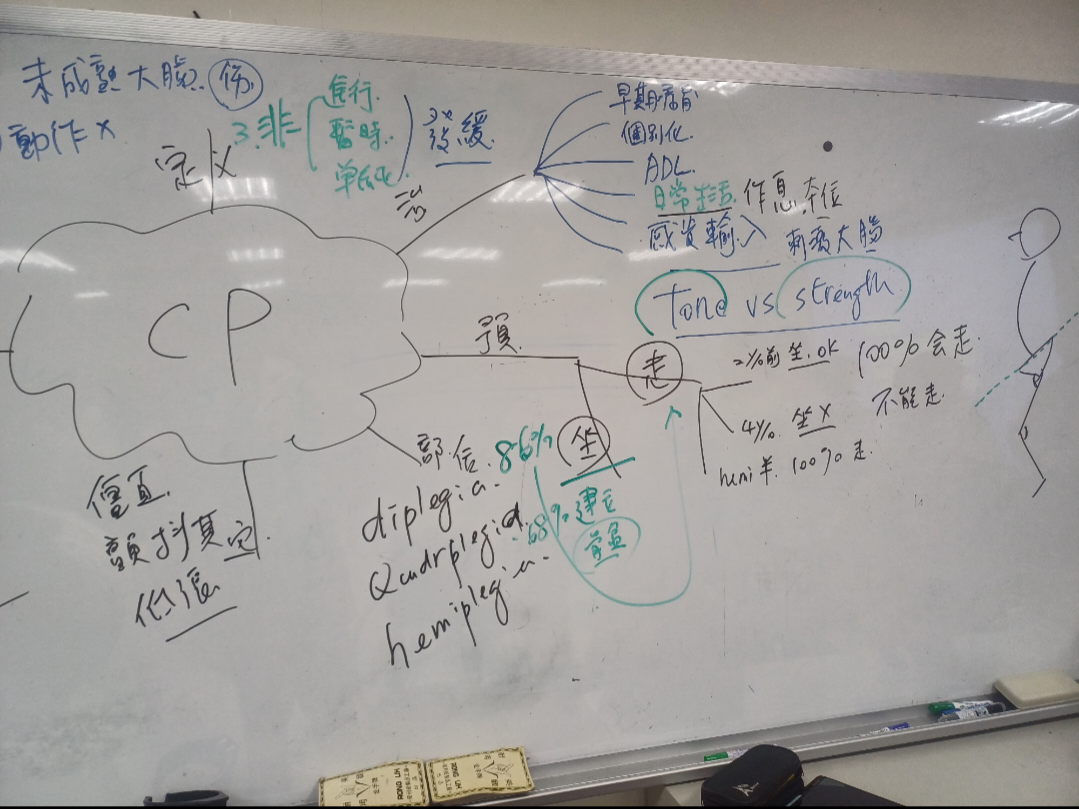 未成熟大腦 傷
動作 x
定义
3.非
進行
暫時
單純化
發緩
治
早期療育
個別化
ADL
日常生活 作息本位
感覺輸入 刺激大腦
CP
tone vs strength
預
走
2y前 坐.OK 100%会走.
4y. 坐X 不能走.
hemi 100%走.
部位
86% 坐
68%建立
diplegia
Quadrplegia
hemiplegia
僵直
顫抖
低張
RONG LIH
RONG LIH